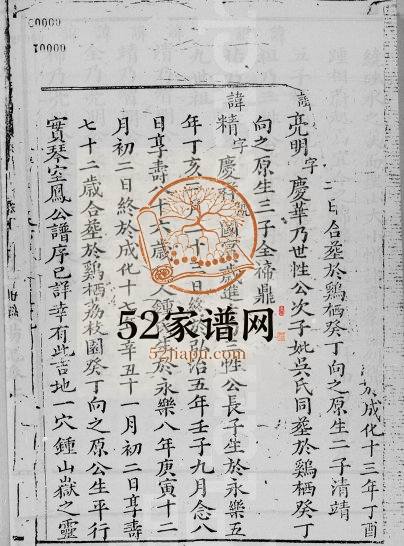 於成化十三年丁酉
二日合葬於鷄栖癸丁向之原生二子清靖
諱亮明字慶華乃世性公次子妣吳氏同葬於鷄栖癸丁
向之原生三子全禘鼎
諱精字慶 國 歲進 性公長子生於永樂五
年丁亥 月 十 日終弘治五年壬子九月念八
日享壽八十六歲 鍾 於永樂八年庚寅十二
月初二日終於成化十七 辛丑十一月初二日享壽
七十二歲合葬於鷄栖荔枝園癸丁向之原公生平行
實琴室鳳公譜序已詳幸有此吉地一穴鍾山嶽之靈
00000
10000
52家谱网
52jiapu.com